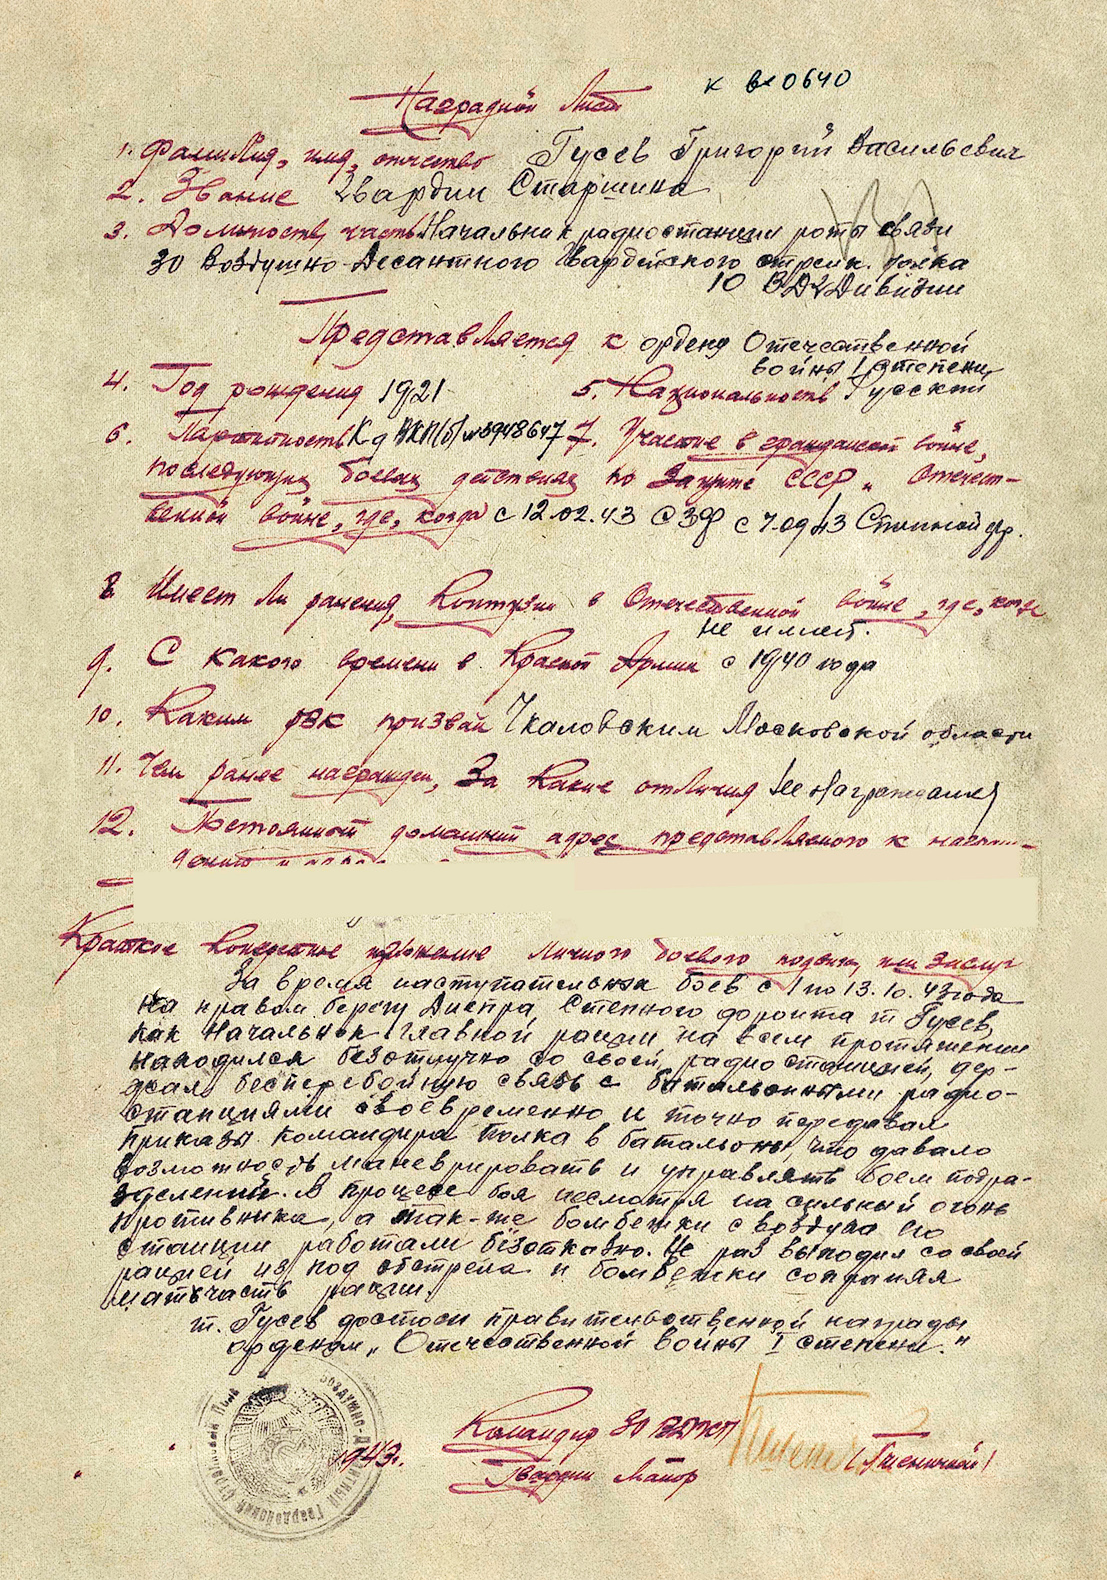 к вх 0640
Наградной Лист
1. Фамилия, имя, отчество Гусев Григорий Васильевич
2. Звание Гвардии Старшина
3. Должность, часть Начальник радиостанции роты связи
30 Воздушно-Десантного Гвардейского стрелк. полка
10 ВДГДивизии
Представляется к ордену Отечественной
войны I степени
4. Год рождения 1921 5. Национальность Русский
6. Партийность Кд ВКП(б) №3948647 7. Участие в гражданской войне,
последующих боевых действиях по защите СССР и отечест-
венной войне, где, когда с 12.02.43 СЗФ с 7.09.43 Степной фр.
8 Имеет ли ранения, контузии в Отечественной войне, где, когда
не имеет.
9. С какого времени в Красной Армии с 1940 года
10. Каким РВК призван Чкаловским Московской области
11. Чем ранее награжден, за какие отличия Не награждался
12. Постоянный домашний адрес представляемого к награж-
дению и адрес
Краткое конкретное изложение личного боевого подвига, или заслуг
За время наступательных боев с 1 по 13.10.43 года
на правом берегу Днепра, Степного фронта т. Гусев,
как Начальник главной рации, на всем протяжении
находился безотлучно со своей радиостанцией, дер-
жал бесперебойную связь с батальонными радио-
станциями своевременно и точно передавал
приказы командира полка в батальоны, что давало
возможность маневрировать и управлять боем подра-
зделений. В процессе боя несмотря на сильный огонь
противника, а так-же бомбежки с воздуха его
станции работали безотказно. Не раз выходил со своей
рацией из под обстрела и бомбежки сохраняя
матчасть рации.
т. Гусев достоин правительственной награды
орденом "Отечественной войны I степени."
1943г.
Командир 30 ВДГСП
Гвардии Майор
(Пшеничный)